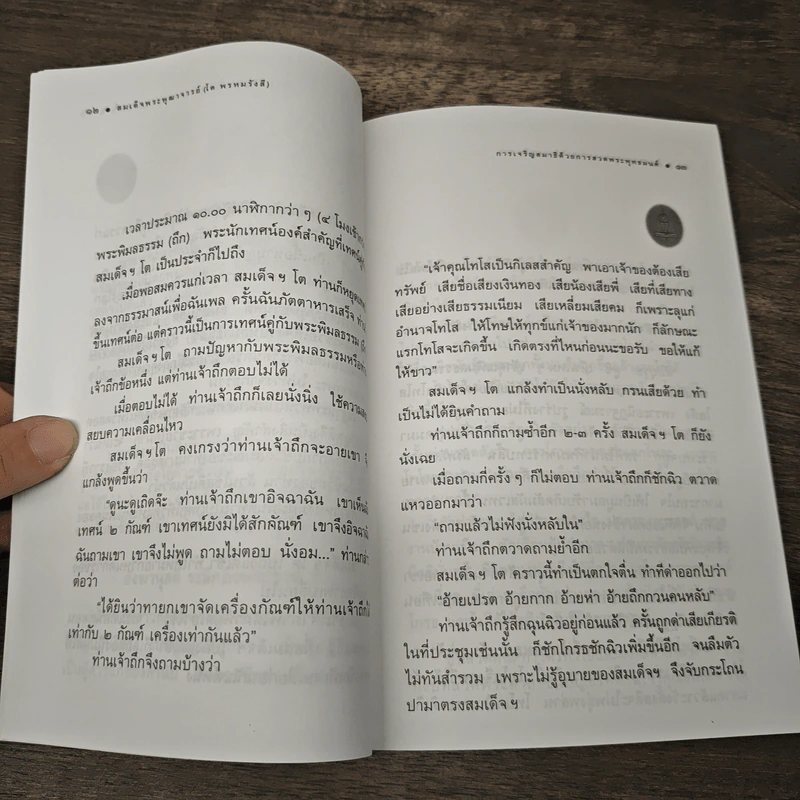 ๑๒ • สมเด็จพระพุฒาจารย์ (โต พรหมรังสี)
เวลาประมาณ ๑๐.๐๐ นาฬิกากว่า ๆ (๔ โมงเช้า
พระพิมลธรรม (ถึก) พระนักเทศน์องค์สำคัญที่เทศน์
สมเด็จฯ โต เป็นประจำก็ไปถึง
เมื่อพอสมควรแก่เวลา สมเด็จฯ โต ท่านก็หยุด
ลงจากธรรมาสน์เพื่อฉันเพล ครั้นฉันภัตตาหารเสร็จ
ขึ้นเทศน์ต่อ แต่คราวนี้เป็นการเทศน์คู่กับพระพิมลธรรม
สมเด็จฯ โต ถามปัญหากับพระพิมลธรรมหรือ
เจ้าถึกข้อหนึ่ง แต่ท่านเจ้าถึกตอบไม่ได้
เมื่อตอบไม่ได้ ท่านเจ้าถึกก็เลยนั่งนิ่ง ใช้ความ
สยบความเคลื่อนไหว
สมเด็จฯ โต คงเกรงว่าท่านเจ้าถึกจะอายเขา
แกล้งพูดขึ้นว่า
“ดูนะดูเถิดจ๊ะ ท่านเจ้าถึกเขาอิจฉาฉัน เขาเห็น
เทศน์ ๒ กัณฑ์ เขาเทศน์ยังมิได้สักกัณฑ์ เขาจึงอิจฉา
ฉันถามเขา เขาจึงไม่พูด ถามไม่ตอบ นั่งอม...” ท่าน
ต่อว่า
“ได้ยินว่าทายกเขาจัดเครื่องกัณฑ์ให้ท่านเจ้าถึก
เท่ากับ ๒ กัณฑ์ เครื่องเท่ากันแล้ว”
ท่านเจ้าถึกจึงถามบ้างว่า
การเจริญสมาธิด้วยการสวดพระพุทธมนต์ • ๑๓
“เจ้าคุณโทโสเป็นกิเลสสำคัญ พาเอาเจ้าของต้องเสีย
ทรัพย์ เสียชื่อเสียงเงินทอง เสียน้องเสียพี่ เสียที่เสียทาง
เสียอย่างเสียธรรมเนียม เสียเหลี่ยมเสียคม ก็เพราะลุแก่
อำนาจโทโส ให้โทษให้ทุกข์แก่เจ้าของมากนัก ก็ลักษณะ
แรกโทโสจะเกิดขึ้น เกิดตรงที่ไหนก่อนนะขอรับ ขอให้แก้
ให้ขาว”
สมเด็จฯ โต แกล้งทำเป็นนั่งหลับ กรนเสียด้วย ทำ
เป็นไม่ได้ยินคำถาม
ท่านเจ้าถึกก็ถามซ้ำอีก ๒-๓ ครั้ง สมเด็จฯ โต ก็ยัง
นั่งเฉย
เมื่อถามกี่ครั้ง ๆ ก็ไม่ตอบ ท่านเจ้าถึกก็ชักฉิว ตวาด
แหวออกมาว่า
“ถามแล้วไม่ฟังนั่งหลับใน”
ท่านเจ้าถึกตวาดถามย้ำอีก
สมเด็จฯ โต คราวนี้ทำเป็นตกใจตื่น ทำทีด่าออกไปว่า
“อ้ายเปรต อ้ายกาก อ้ายห่า อ้ายถึกกวนคนหลับ”
ท่านเจ้าถึกรู้สึกฉุนฉิวอยู่ก่อนแล้ว ครั้นถูกด่าเสียเกียรติ
ในที่ประชุมเช่นนั้น ก็ชักโกรธชักฉิวเพิ่มขึ้นอีก จนลืมตัว
ไม่ทันสำรวม เพราะไม่รู้อุบายของสมเด็จฯ จึงจับกระโถน
ปามาตรงสมเด็จฯ